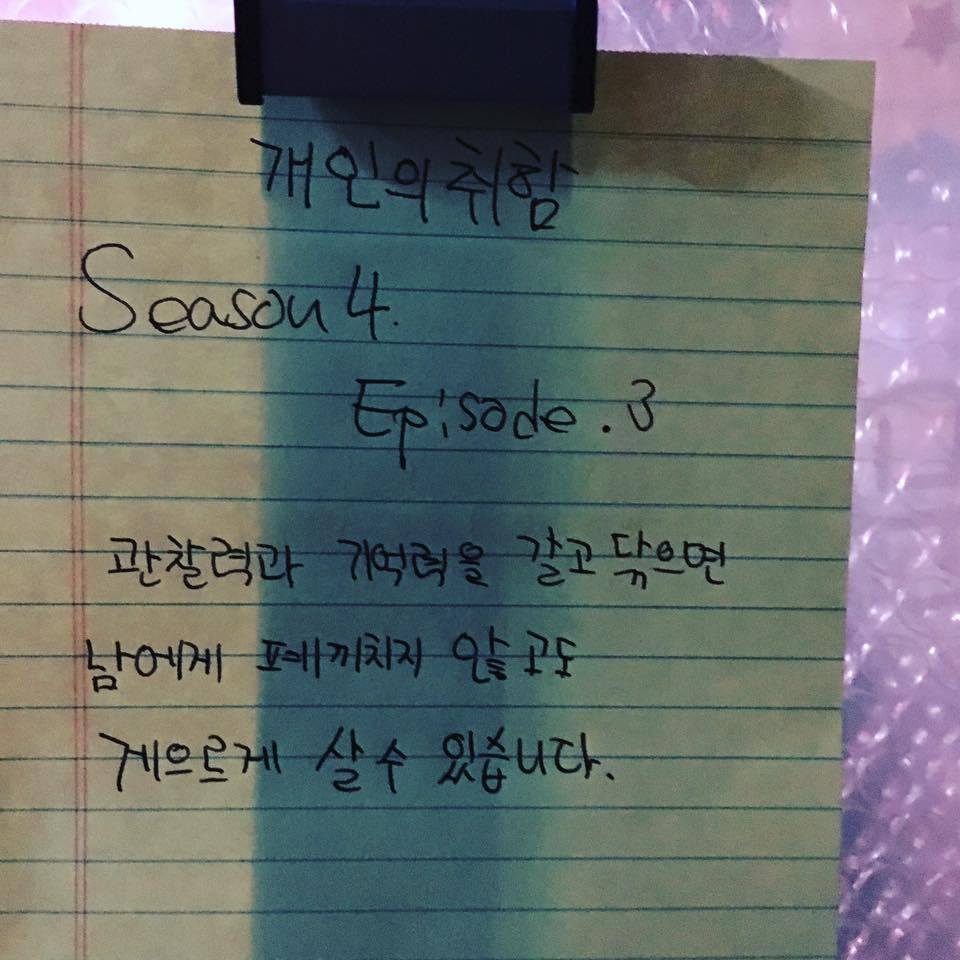 개인의취함
Season 4.
Episode. 3
관찰력과 기억력을 갈고 닦으면
남에게 폐끼치지 않고도
게으르게 살 수 있습니다.